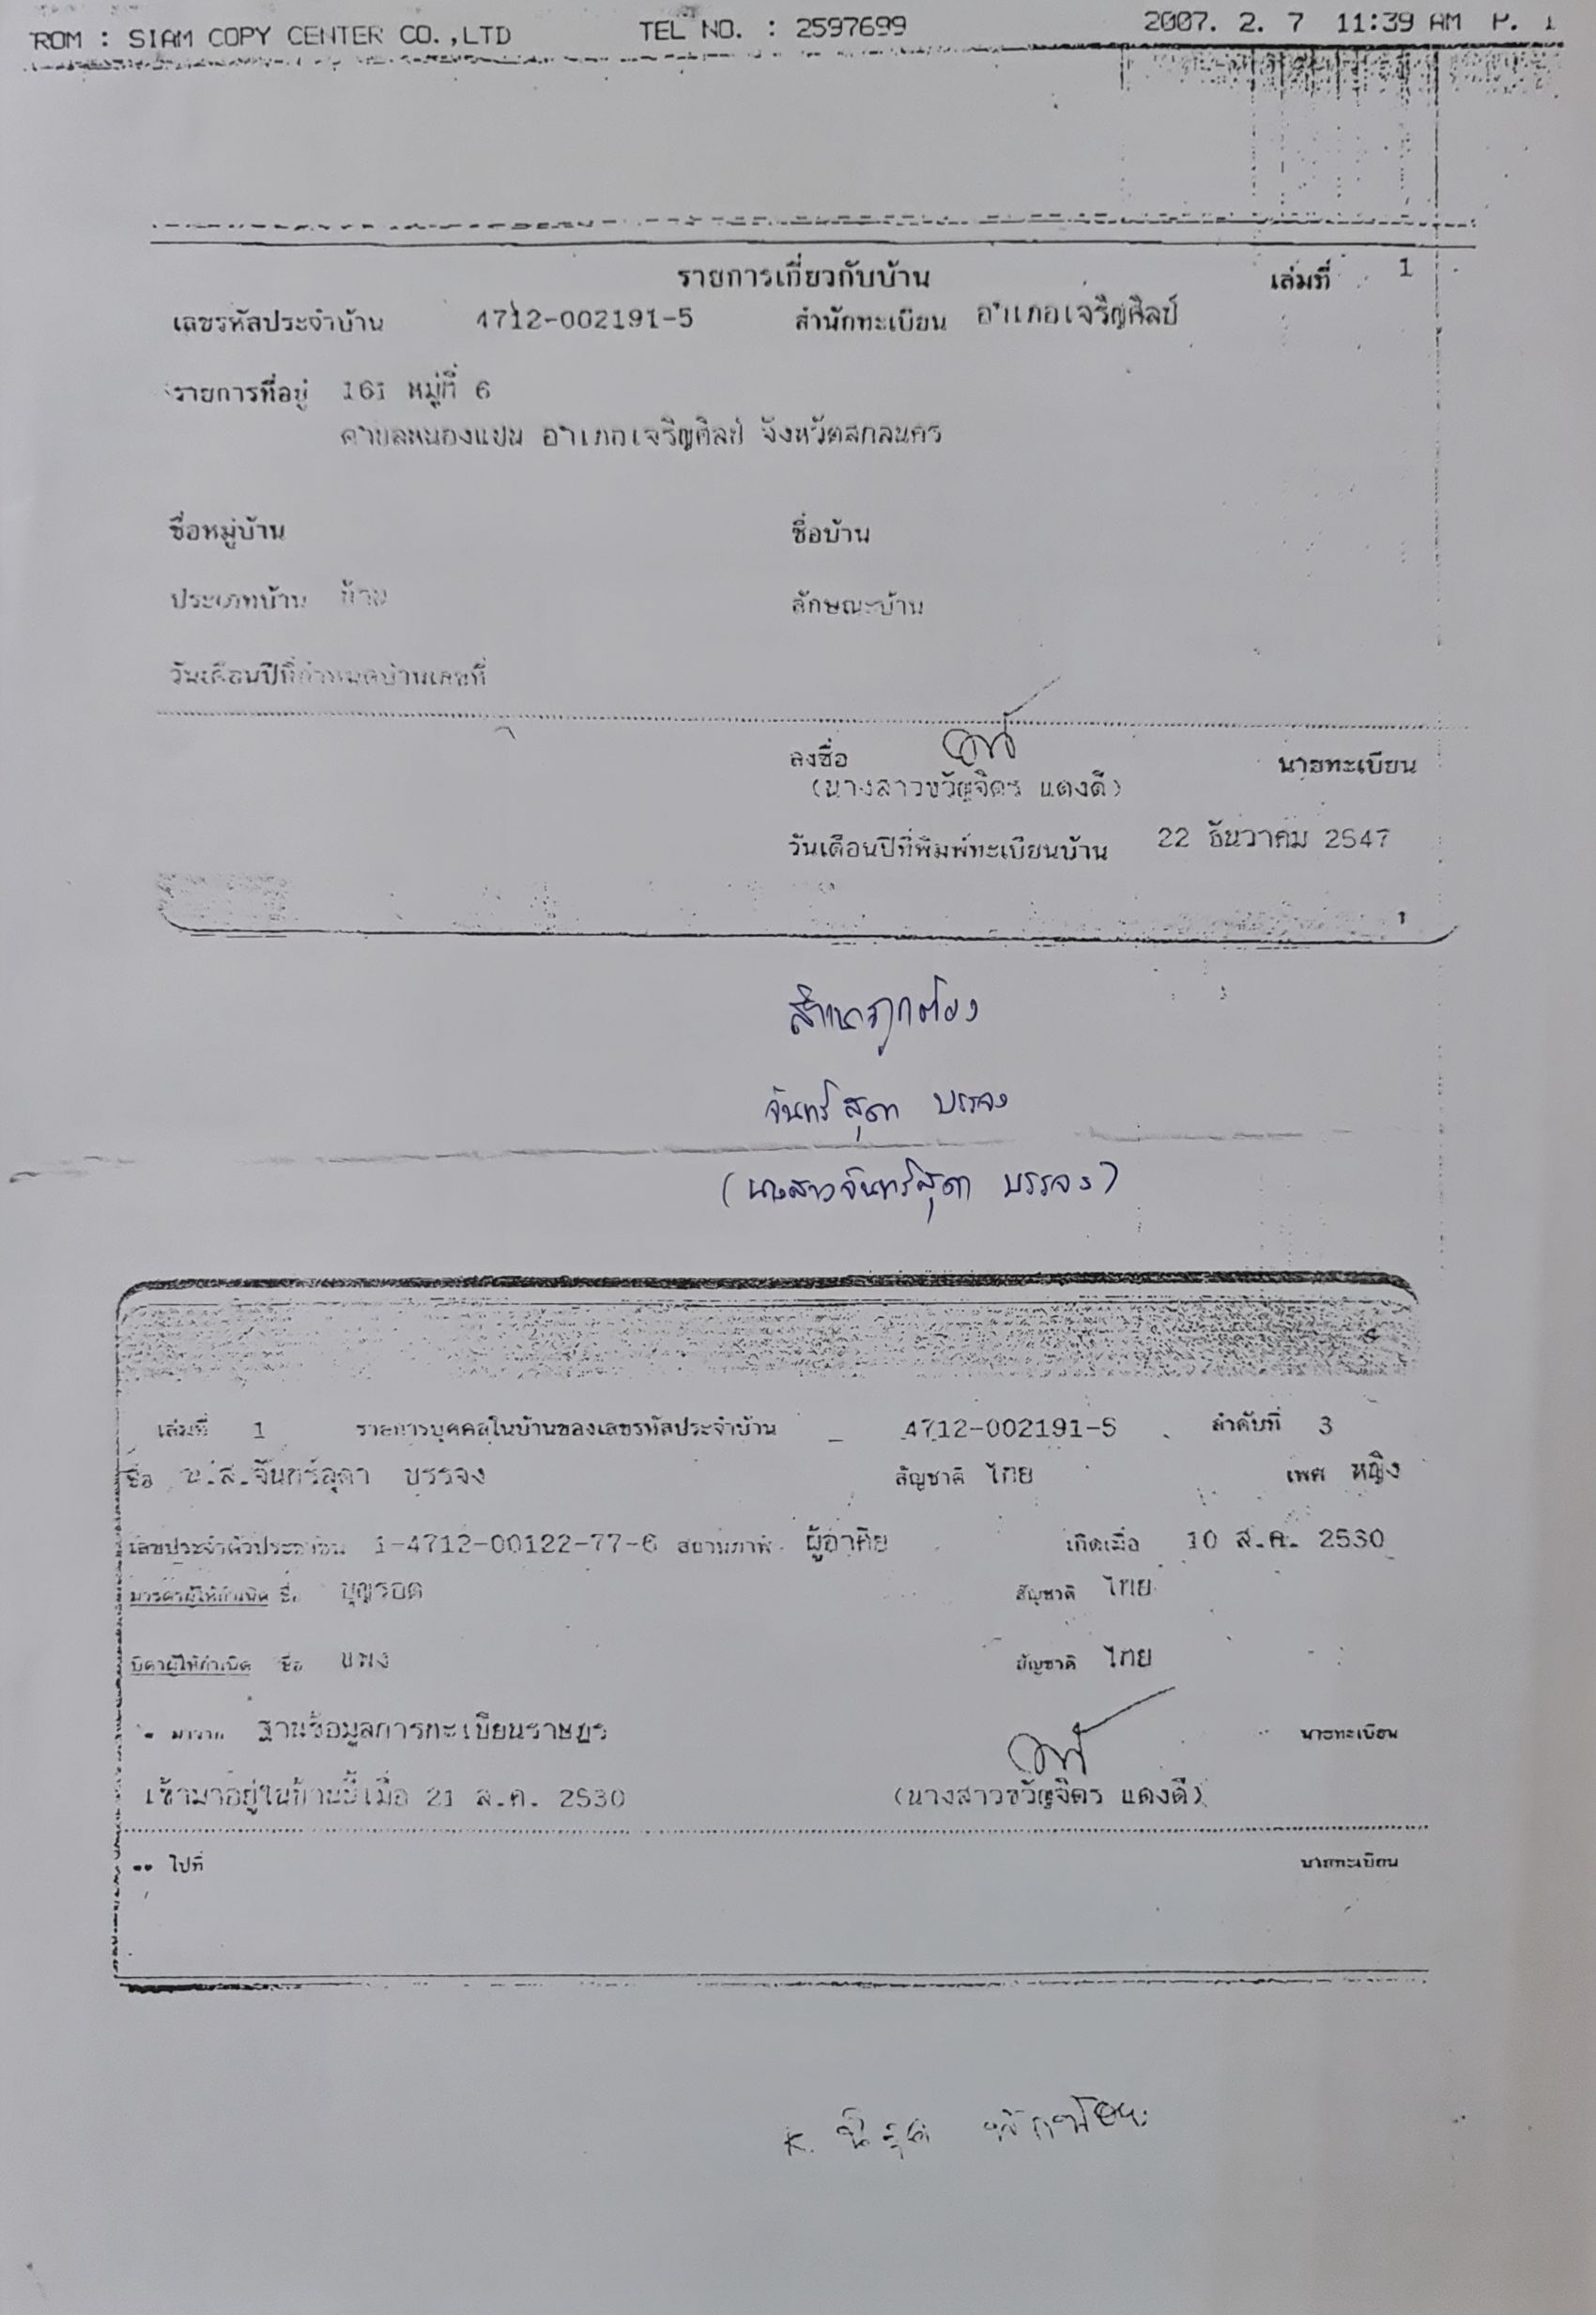 ROM : SIAM COPY CENTER CO.,LTD TEL NO. : 2597699 2007. 2. 7 11:39 AM P. 1
รายการเกี่ยวกับบ้าน เล่มที่ 1
เลขรหัสประจำบ้าน 4712-002191-5 สำนักทะเบียน อำเภอเจริญศิลป์
รายการที่อยู่ 161 หมู่ที่ 6
ตำบลหนองแปน อำเภอเจริญศิลป์ จังหวัดสกลนคร
ชื่อหมู่บ้าน ชื่อบ้าน
ประเภทบ้าน บ้าน ลักษณะบ้าน
วันเดือนปีที่กำหนดบ้านเลขที่
ลงชื่อ นายทะเบียน
(นางสาวขวัญจิตร แดงดี)
วันเดือนปีที่พิมพ์ทะเบียนบ้าน 22 ธันวาคม 2547
1
สำเนาถูกต้อง
จันทร์สุดา บรรจง
(นางสาวจันทร์สุดา บรรจง)
เล่มที่ 1 รายการบุคคลในบ้านของเลขรหัสประจำบ้าน 4712-002191-5 ลำดับที่ 3
ชื่อ น.ส.จันทร์สุดา บรรจง สัญชาติ ไทย เพศ หญิง
เลขประจำตัวประชาชน 1-4712-00122-77-6 สถานภาพ ผู้อาศัย เกิดเมื่อ 10 ส.ค. 2530
มารดาผู้ให้กำเนิด ชื่อ บุญรอด สัญชาติ ไทย
บิดาผู้ให้กำเนิด ชื่อ สัญชาติ ไทย
* มาจาก ฐานข้อมูลการทะเบียนราษฎร นายทะเบียน
เข้ามาอยู่ในบ้านนี้เมื่อ 21 ส.ค. 2530 (นางสาวขวัญจิตร แดงดี)
** ไปที่ นายทะเบียน